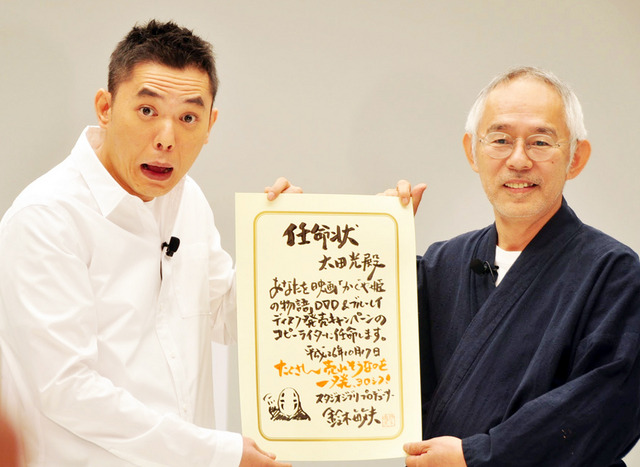 任命状
太田光殿
あなたを映画「かぐや姫
の物語」DVD&ブルーレイ
ディスク発売キャンペーンの
コピーライターに任命します。
平成26年10月17日
たくさん売れそうなのを
一発、ヨロシク!
スタジオジブリプロデューサー
鈴木敏夫